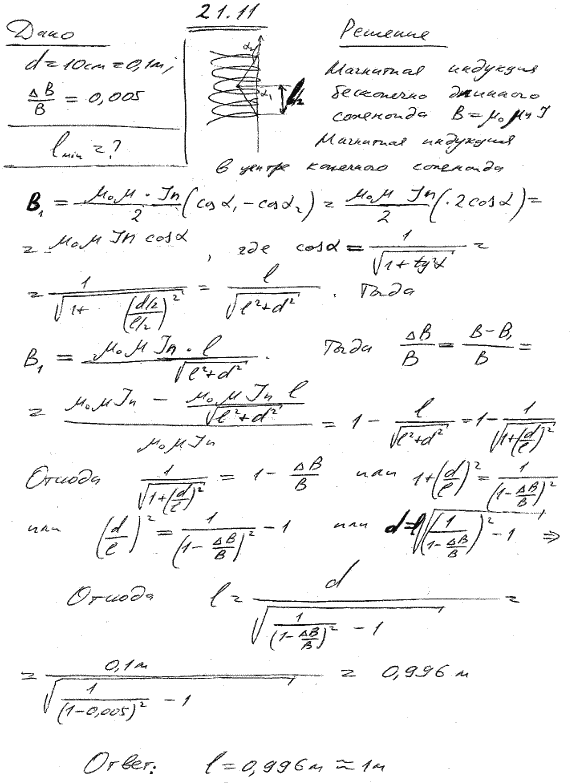 21.11
Дано
d = 10см = 0,1м;
ΔB/B = 0,005
l min = ?
α₂
α₁
l/2
Решение
Магнитная индукция
бесконечно длинного
соленоида B = μ₀ μ n I
Магнитная индукция
в центре конечного соленоида
B₁ = (μ₀ μ · In)/2 (cos α₁ - cos α₂) = (μ₀ μ In)/2 (· 2 cos α) =
= μ₀ μ In cos α, где cos α = 1/√(1 + tg²α) =
= 1/√(1 + ((d/2)/(l/2))²) = l/√(l² + d²). Тогда
B₁ = (μ₀ μ In · l)/√(l² + d²). Тогда ΔB/B = (B - B₁)/B =
= (μ₀ μ In - (μ₀ μ In l)/√(l² + d²))/(μ₀ μ In) = 1 - l/√(l² + d²) = 1 - 1/√(1 + (d/l)²)
Отсюда 1/√(1 + (d/l)²) = 1 - ΔB/B или 1 + (d/l)² = 1/(1 - ΔB/B)²
или (d/l)² = 1/(1 - ΔB/B)² - 1 или d = l√((1/(1 - ΔB/B))² - 1) ⇒
Отсюда l = d/√(1/(1 - ΔB/B)² - 1) =
= 0,1м/√(1/(1 - 0,005)² - 1) = 0,996 м
Ответ: l = 0,996м ≈ 1м